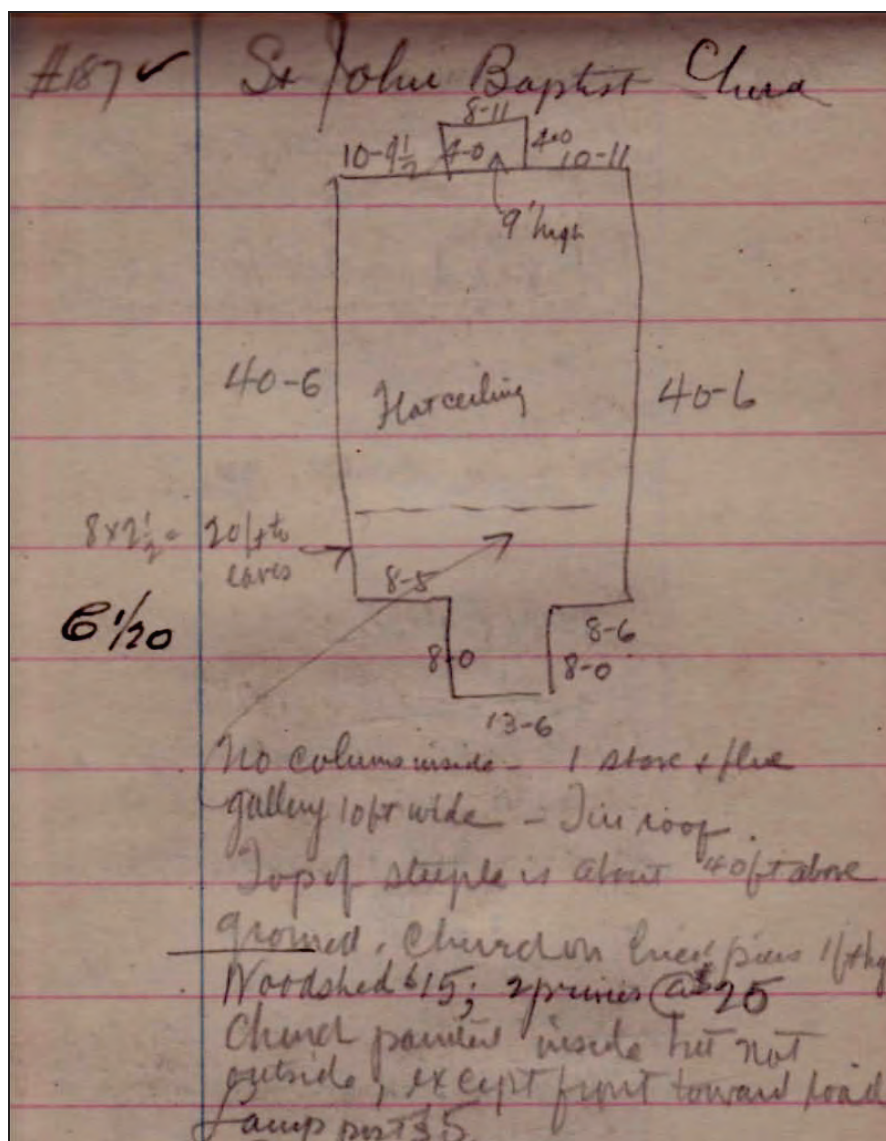 #187 ✓ St John Baptist Church
8-11
10-9½ 4-0 4-0 10-11
9' high
40-6 Flat ceiling 40-6
8 x 2½ = 20 ft to
eaves
8-5
6 1/20
8-6
8-0 8-0
13-6
No columns inside – 1 stove & flue
gallery 10 ft wide – Tin roof.
Top of steeple is about 40 ft above
ground. Church on piers 1 ft
Woodshed $15; 2 privies @ $25
Church painted inside but not
outside, except front toward road
Lamp post $5